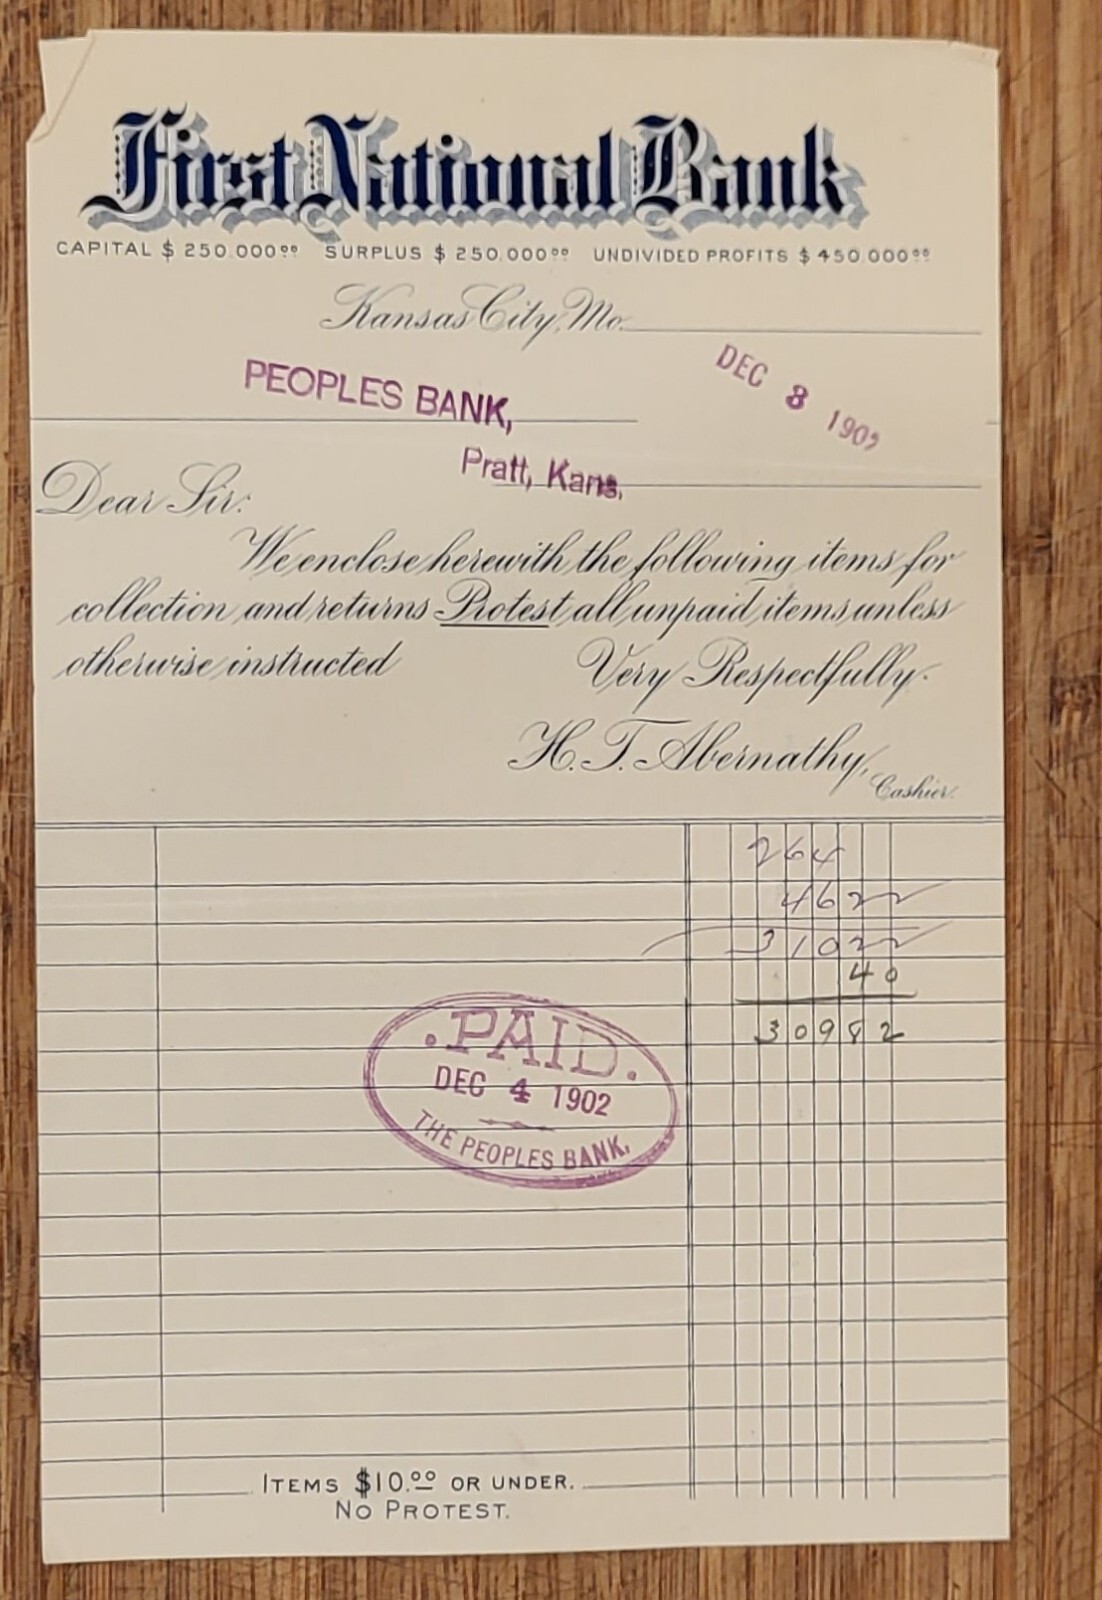 First National Bank
CAPITAL $ 250.000⁰⁰ SURPLUS $ 250.000⁰⁰ UNDIVIDED PROFITS $ 450.000⁰⁰
Kansas City, Mo.
DEC 3 190
PEOPLES BANK,
Pratt, Kans.
Dear Sir:
We enclose herewith the following items for
collection and returns Protest all unpaid items unless
otherwise instructed
Very Respectfully.
H. T. Abernathy,
Cashier.
264
4622
31022
40
30982
.PAID.
DEC 4 1902
THE PEOPLES BANK.
ITEMS $10.⁰⁰ OR UNDER.
NO PROTEST.